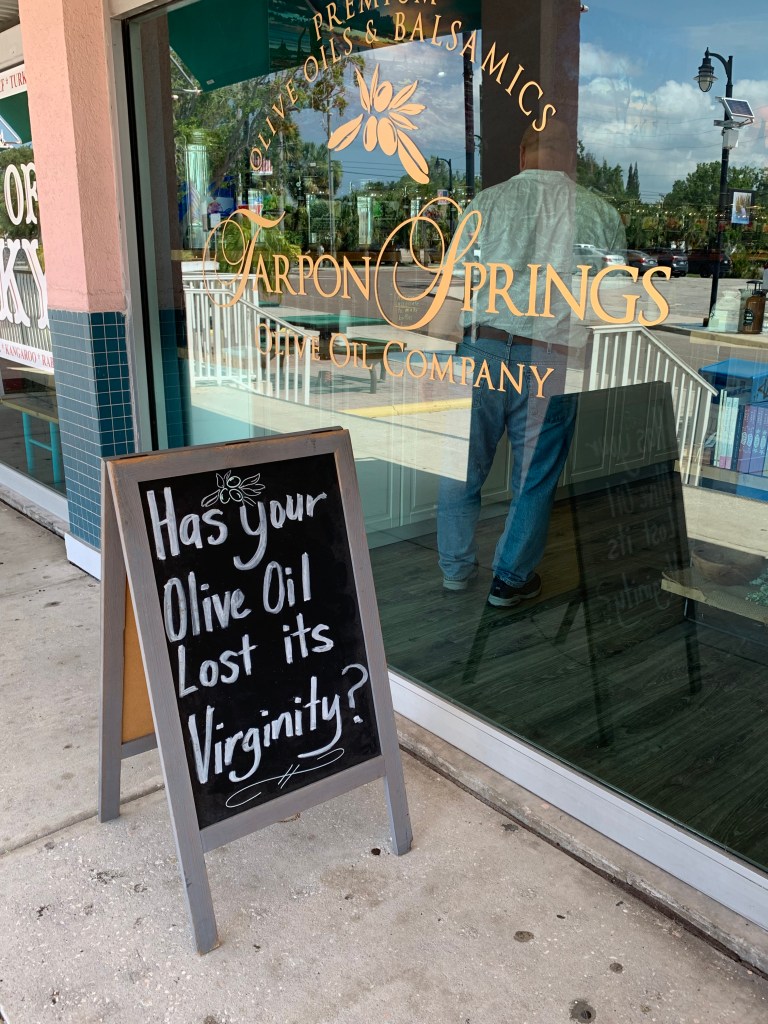 PREMIUM
OLIVE OILS & BALSAMICS
TARPON SPRINGS
OLIVE OIL COMPANY
OF
KY
KANGAROO
Has your
Olive Oil
Lost its
Virginity?